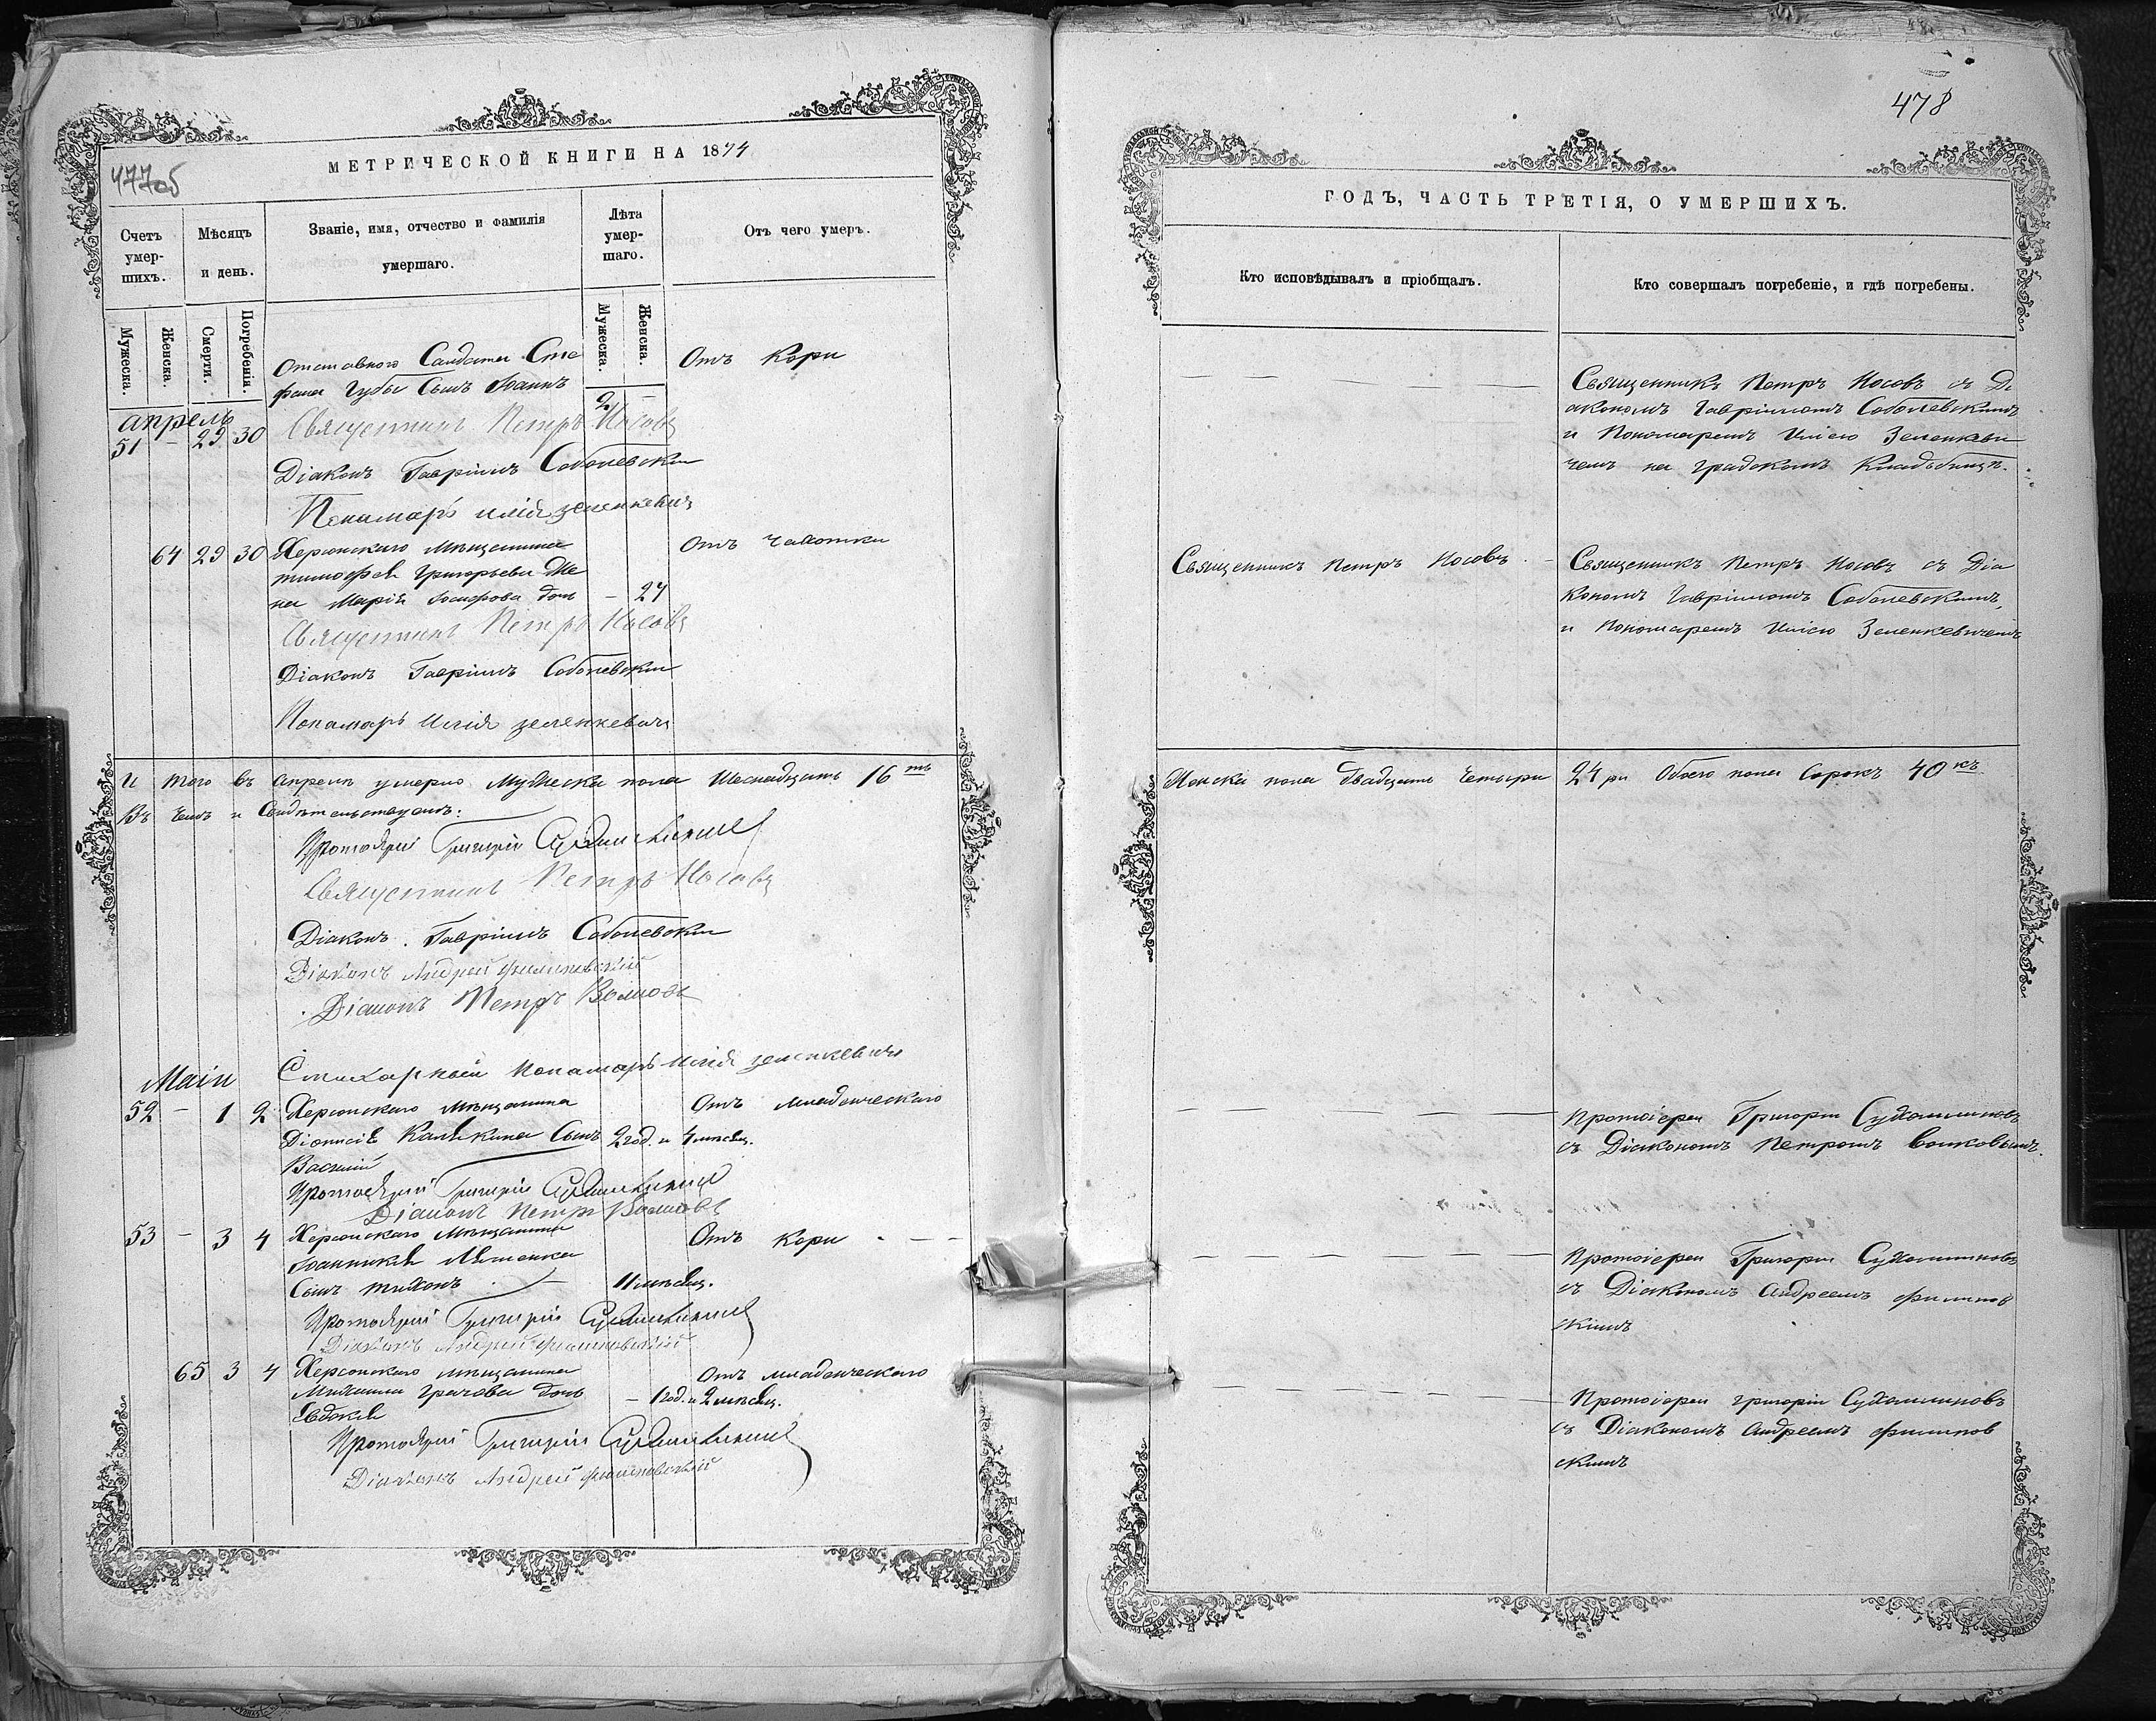 477об
МЕТРИЧЕСКОЙ КНИГИ НА 1874
Счетъ умер-шихъ.
Мѣсяцъ и день.
Званіе, имя, отчество и фамилія умершаго.
Лѣта умер-шаго.
Отъ чего умеръ.
Мужеска.
Женска.
Смерти.
Погребенія.
Мужеска.
Женска.
Отставного Салдата Сте
фана Губы Сынъ Іоаннъ
Отъ Кори
апрель
51 – 29 30
2 –
Священникъ Петръ Носовъ
Діаконъ Гавріилъ Соболевскій
Пономарь Илія Зеленкевичъ
64 29 30 Херсонскаго Мѣщанина
Отъ Чахотки
Тимофея Григорьева Же
на Марія Іосифова дочь – 27
Священникъ Петръ Носовъ
Діаконъ Гавріилъ Соболевскій
Пономарь Илія Зеленкевичъ
И того въ апрелѣ умерло Мужеска пола Шеснадцать 16ть
Въ Чемъ и Свидѣтельствуемъ:
Протоіерей Григорій Сухомлиновъ
Священникъ Петръ Носовъ
Діаконъ Гавріилъ Соболевскій
Діаконъ Андрей Филиповскій
Діаконъ Петръ Волковъ
Стихарный Пономарь Илія Зеленкевичъ
Маій
52 – 1 2 Херсонскаго Мѣщанина
Отъ младенческаго
Діонисія Сынъ 2 год. и 4 мѣсяц.
Василій
Протоіерей Григорій Сухомлиновъ
Діаконъ Петръ Волковъ
53 – 3 4 Херсонскаго Мѣщанина
Отъ Кори
Іоанникія
Сынъ Тихонъ 11 мѣсяц.
Протоіерей Григорій Сухомлиновъ
Діаконъ Андрей Филиповскій
65 3 4 Херсонскаго мѣщанина
Отъ младенческаго
Михаила Грачова дочь – 1 год. и 2 мѣсяц.
Евдокія
Протоіерей Григорій Сухомлиновъ
Діаконъ Андрей Филиповскій
478
ГОДЪ, ЧАСТЬ ТРЕТІЯ, О УМЕРШИХЪ.
Кто исповѣдывалъ и пріобщалъ.
Кто совершалъ погребеніе, и гдѣ погребены.
Священникъ Петръ Носовъ съ Ді
акономъ Гавріиломъ Соболевскимъ
и Пономаремъ Иліею Зеленкеви
чемъ на градскомъ Кладбищѣ.
Священникъ Петръ Носовъ
Священникъ Петръ Носовъ съ Діа
кономъ Гавріиломъ Соболевскимъ,
и Пономаремъ Иліею Зеленкевичемъ
Женска пола двадцать Четыри
24ри Обоего пола Сорокъ 40къ
Протоіерей Григорій Сухомлиновъ
съ Діакономъ Петромъ Волковымъ.
Протоіерей Григорій Сухомлиновъ
съ Діакономъ Андреемъ Филипов
скимъ
Протоіерей Григорій Сухомлиновъ
съ Діакономъ Андреемъ Филипов
скимъ